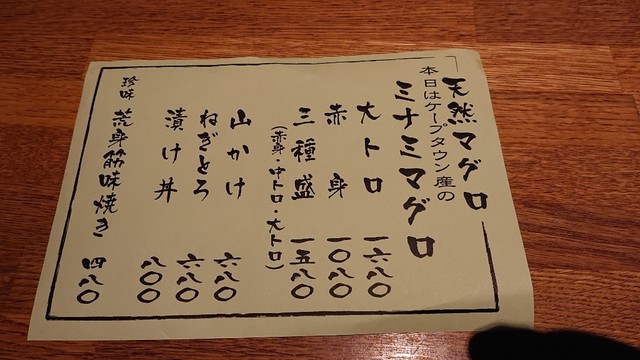 天然マグロ
本日はケープタウン産の
ミナミマグロ
大トロ 一六八〇
赤身 一〇八〇
三種盛 一五八〇
(赤身・中トロ・大トロ)
山かけ 六八〇
ねぎとろ 六八〇
漬け丼 八〇〇
珍味 荒身筋味焼き 四八〇